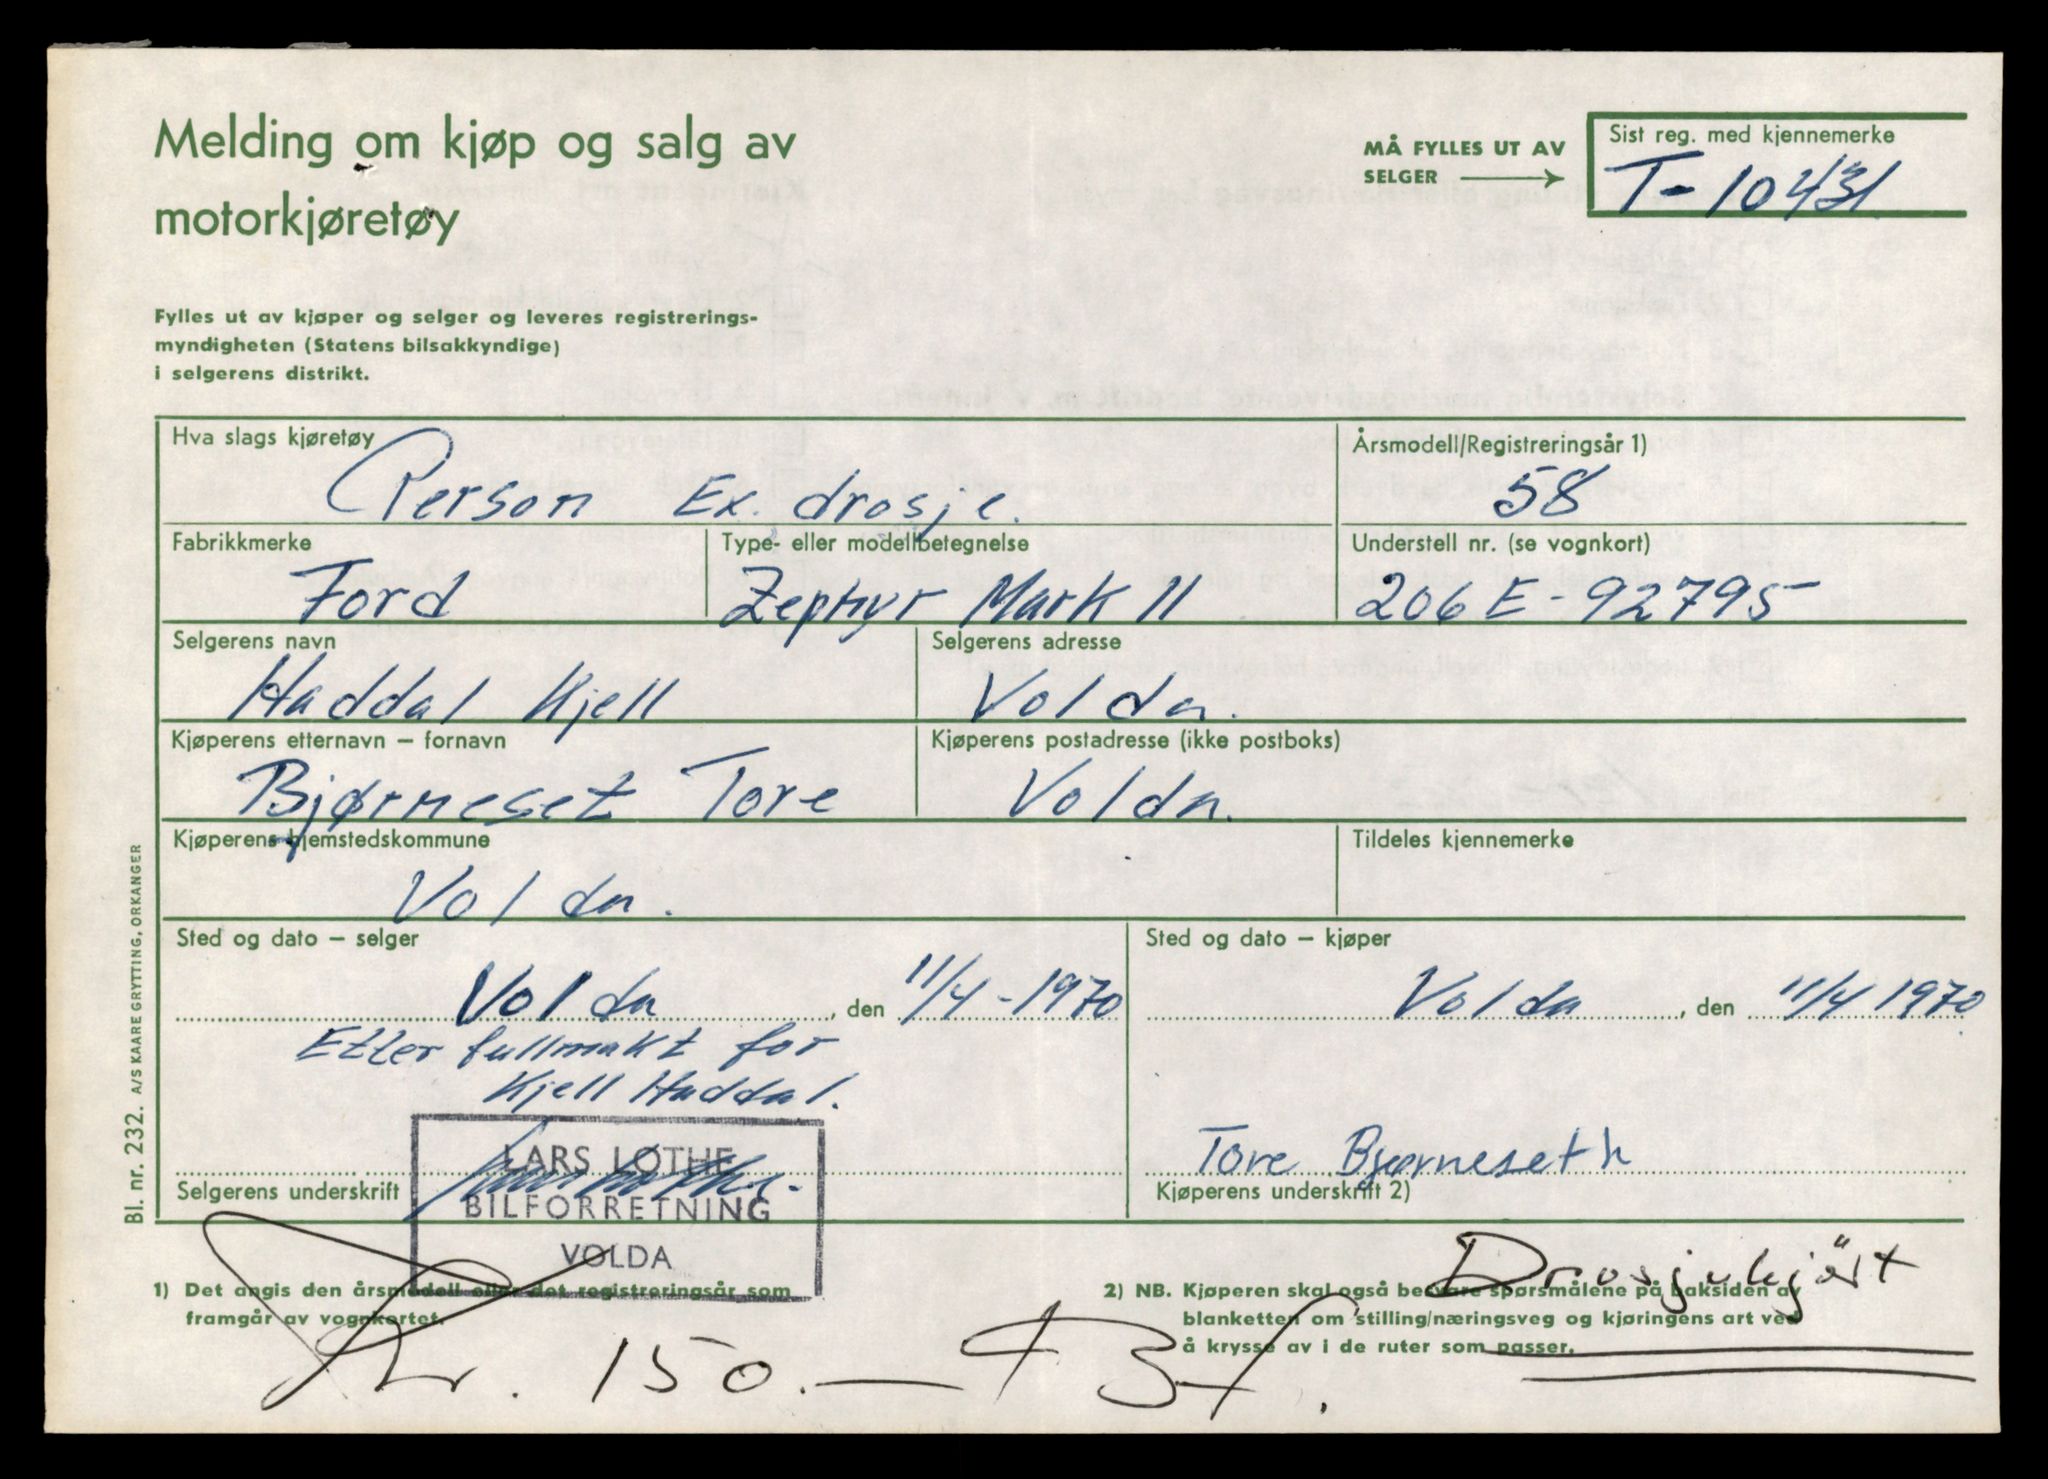 Melding om kjøp og salg av
motorkjøretøy
MÅ FYLLES UT AV
SELGER
Sist reg. med kjennemerke
T-10431
Fylles ut av kjøper og selger og leveres registrerings-
myndigheten (Statens bilsakkyndige)
i selgerens distrikt.
Hva slags kjøretøy
Person Ex. drosje.
Årsmodell/Registreringsår 1)
58
Fabrikkmerke
Ford
Type- eller modellbetegnelse
Zephyr Mark II
Understell nr. (se vognkort)
206E-92795
Selgerens navn
Haddal Kjell
Selgerens adresse
Volda.
Kjøperens etternavn – fornavn
Bjørneset Tore
Kjøperens postadresse (ikke postboks)
Volda.
Kjøperens hjemstedskommune
Volda.
Tildeles kjennemerke
Sted og dato – selger
Volda, den 11/4-1970
Sted og dato – kjøper
Volda, den 11/4 1970
Etter fullmakt for
Kjell Haddal.
LARS LØTHE
BILFORRETNING
VOLDA
Selgerens underskrift
Tore Bjørneseth
Kjøperens underskrift 2)
Bl. nr. 232. A/S KAARE GRYTTING, ORKANGER
1) Det angis den årsmodell eller det registreringsår som
framgår av vognkortet.
2) NB. Kjøperen skal også besvare spørsmålene på baksiden av
blanketten om stilling/næringsveg og kjøringens art ved
å krysse av i de ruter som passer.
Drosjekjört
Kr. 150.—